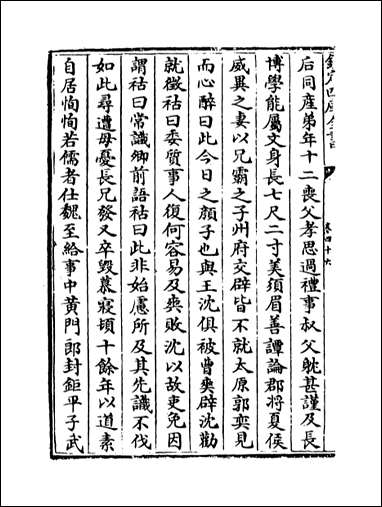 欽定四庫全書
卷四十六
后同產弟年十二喪父孝思過禮事叔父耽甚謹及長
博學能屬文身長七尺二寸美須眉善譚論郡將夏侯
威異之妻以兄霸之子州府交辟皆不就太原郭奕見
而心醉曰此今日之顏子也與王沈俱被曹爽辟沈勸
就徵祜曰委質事人復何容易及爽敗沈以故吏免因
謂祜曰常識卿前語祜曰此非始慮所及其先識不伐
如此尋遭母憂長兄發又卒毀慕寢頓十餘年以道素
自居恂恂若儒者仕魏至給事中黃門郎封鉅平子武